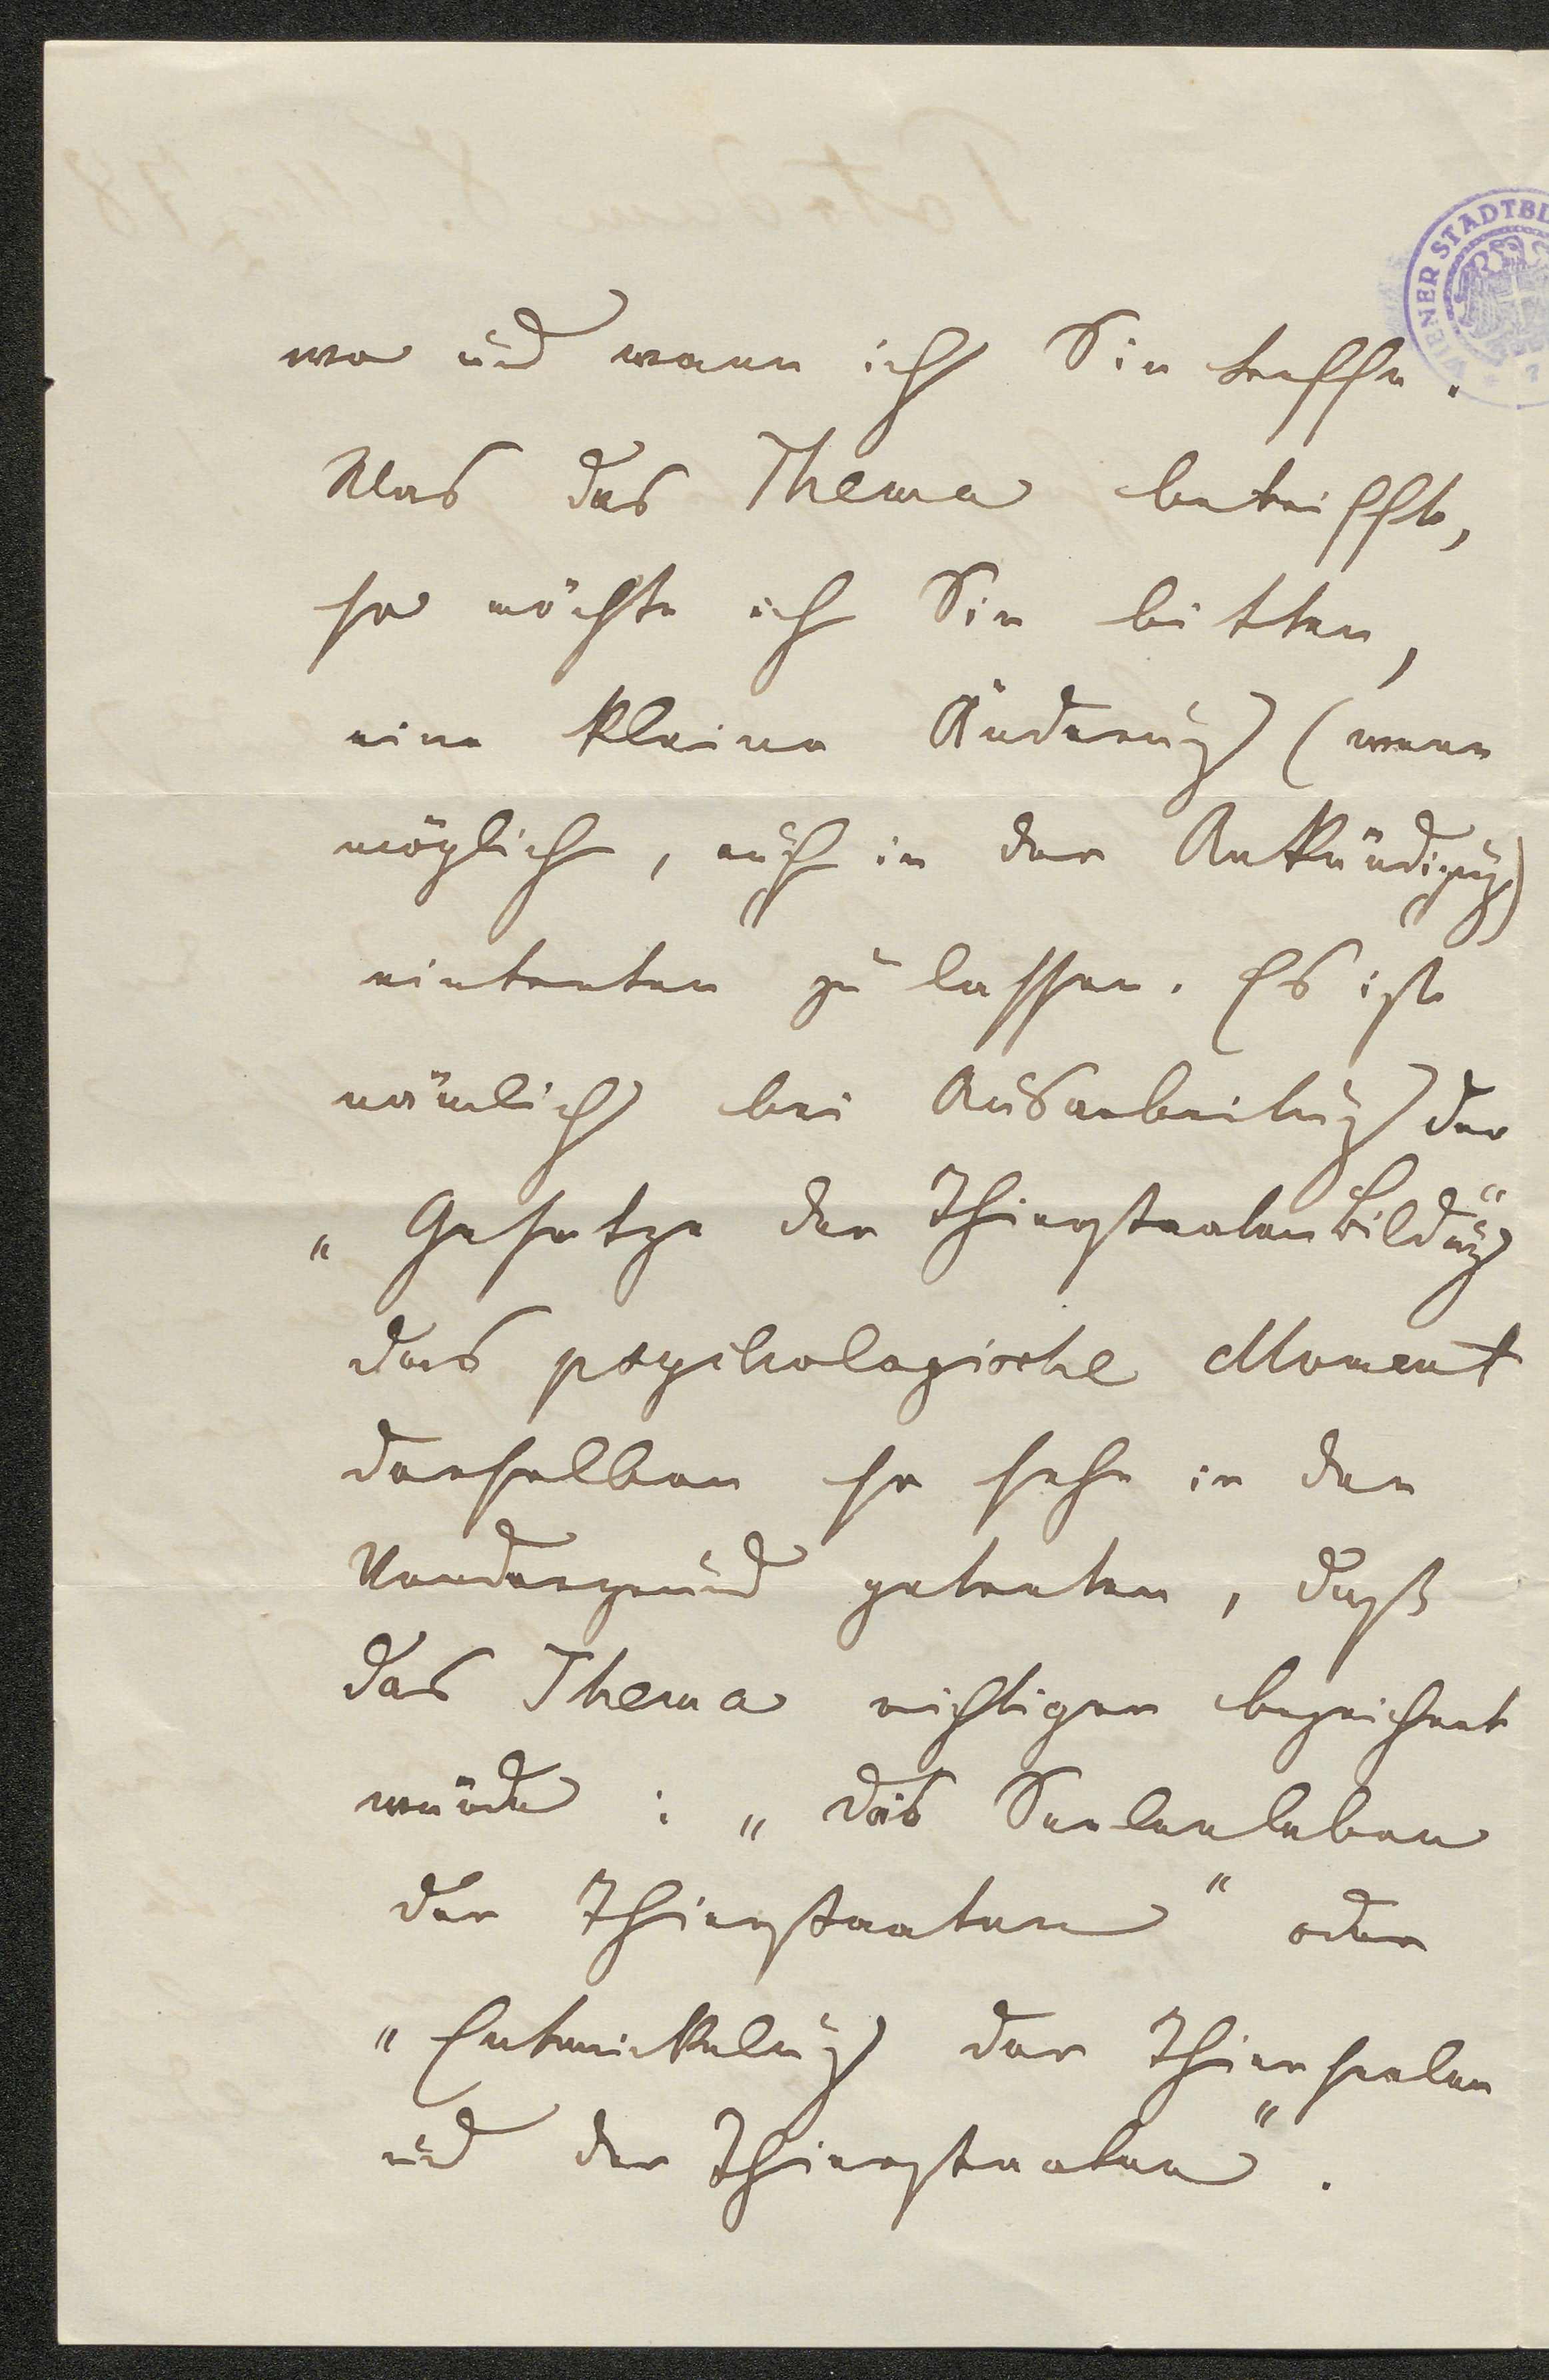 wo und wann ich Sie treffe.
Was das Thema betrifft,
so möchte ich Sie bitten,
eine kleine Änderung (wenn
möglich, auch in der Ankündigung)
eintreten zu lassen. Es ist
nämlich bei Ausarbeitung der
„Gesetze der Thierstaatenbildung“
das psychologische Moment
derselben so sehr in den
Vordergrund getreten, daß
das Thema richtiger bezeichnet
würde: „das Seelenleben
der Thierstaaten“ oder
„Entwickelung der Thierseelen
und der Thierstaaten“.
WIENER STADTBI